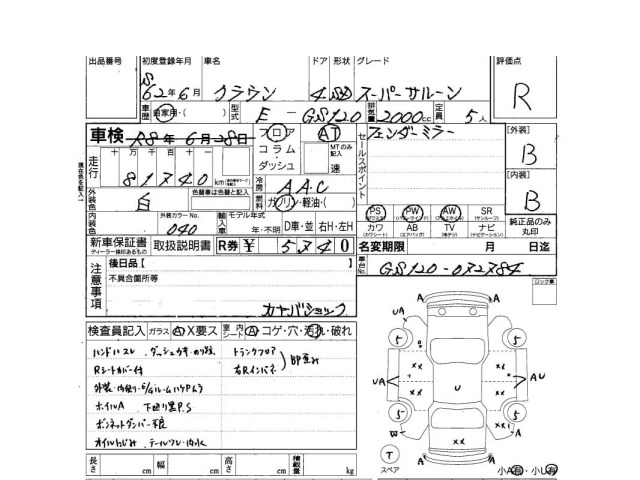 出品番号 初度登録年月 車名 ドア 形状 グレード 評価点
S62年6月 クラウン 4 SD スーパーサルーン R
車歴 自家用・( ) 型式 E-GS120 排気量 2000cc 定員 5人
車検 R8年6月28日 フロア コラム・ダッシュ AT MTのみ記入 速
セールスポイント フェンダーミラー
【外装】 B
【内装】 B
現在色を記入
走行 十万 千 百 十 一
81340 km
冷房 AAC
外装色 白 色替車は色替と記入
燃料 ガソリン・軽油・( )
PS (パワステ) PW (パワーウインド) AW (アルミホイール) SR (サンルーフ)
カワ (カワシート) AB (エアバッグ) TV (地デジ) ナビ (ナビゲーション)
純正品のみ丸印
内装色 外装カラーNo. 040 輸入車 モデル年式 年・不明 D車・並 右H・左H
新車保証書 ディーラー検印あるもの 取扱説明書 R券 ¥ 5340
名変期限 月 日迄
車台No. GS120-072784
ロック車
注意事項 後日品【 】
不具合箇所等
カナバショック
検査員記入 ガラス A X要ス 室内シート A コゲ・穴・汚れ・破れ
ハンドルスレ
トランクフロア
Rシートカバー付
右Rインパネ
ホイルA 下廻り黒P.S
ボンネットダンパー不良
オイルにじみ
UA A A
5 5
UA AU
xx xx
U
5 5
W A
xx xx
xx
A A
T
スペア 小A有・小U有
長さ cm 幅 cm 高さ cm 積載量 kg